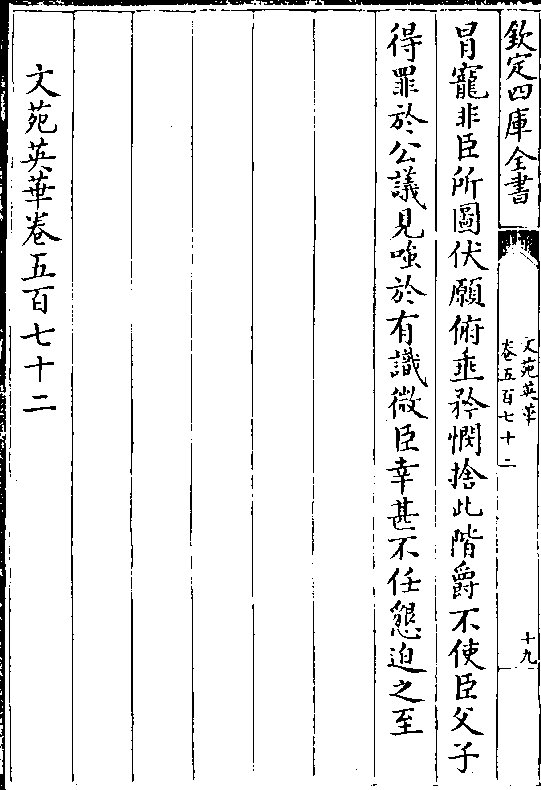 欽定四庫全書
文苑英華
卷五百七十二
十九
冐寵非臣所圖伏願俯垂矜憫捨此階爵不使臣父子
得罪於公議見嗤於有識微臣幸甚不任懇迫之至
文苑英華卷五百七十二